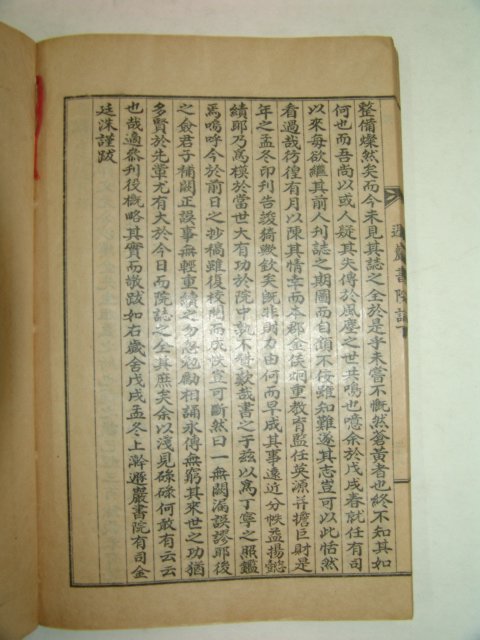 整備燦然矣而今未見其誌之全於是乎未嘗不慨然蒼黃者也終不知其如
何也而吾尚以或人疑其失傳於風塵之世共鳴也噫余於戊戌春就任有司
以來每欲繼其前人刊誌之期圖而自顧不佞雖知難遂其志豈可以此恬然
看過哉彷徨有月以陳其情幸而本郡金侯炯重教育監任英源并擔巨財是
年之孟冬印刊告竣猗歟欽矣旣非財力由何而早成其事遠近分帙益揚懿
績耶乃爲模於當世大有功於院中孰不好歎哉書之于玆以寓丁寧之照鑑
焉嗚呼今於前日之抄稿雖復校閱而成帙豈可斷然曰一無闕漏誤謬耶後
之僉君子補闕正誤事無輕重續之勿怠勉勵相誦永傳無窮其來世之功猶
多賢於先輩尤有大於今日而院誌之全其庶矣余以淺見碌碌何敢有云云
也哉適叅刊役槪略其實而敢跋如右歲舍戊戌孟冬上澣遯巖書院有司金
廷洙謹跋
遯巖書院誌下